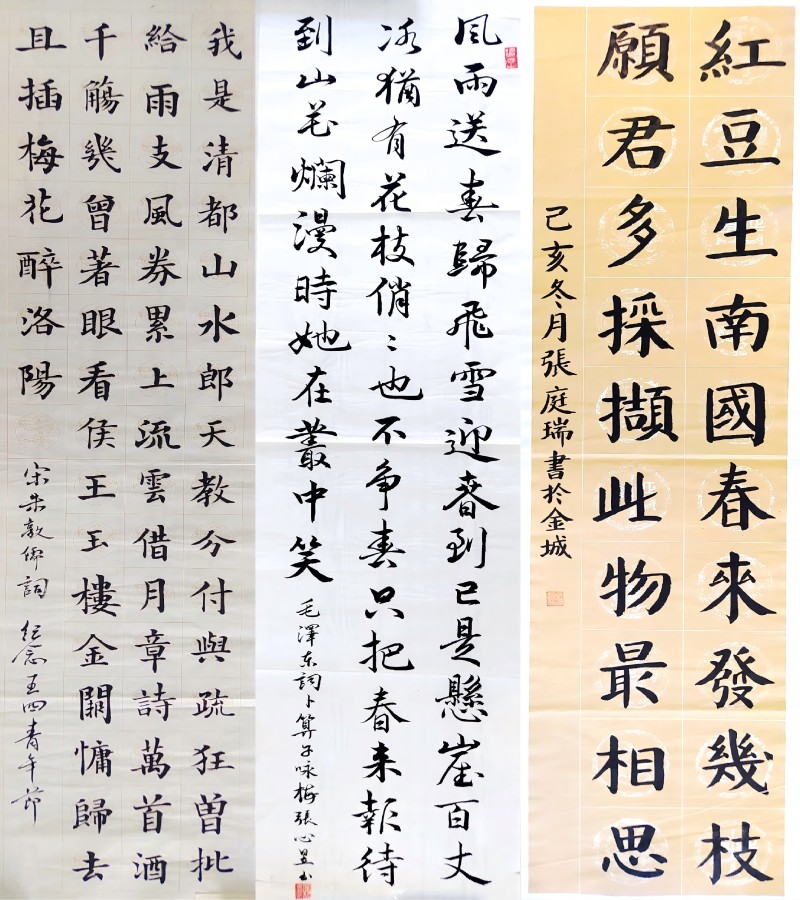 紅豆生南國春來發幾枝
願君多採擷此物最相思
己亥冬月張庭瑞書於金城
風雨送春歸飛雪迎春到已是懸崖百丈
冰猶有花枝俏〻也不争春只把春来報待
到山花爛漫時她在叢中笑
毛澤东詞卜算子咏梅張心昱书
我是清都山水郎天教分付與疏狂曽批
給雨支風券累上流雲借月章詩萬首酒
千觴幾曾著眼看侯王玉樓金闕慵歸去
且插梅花醉洛陽
宋朱敦儒詞 纪念五四青年節